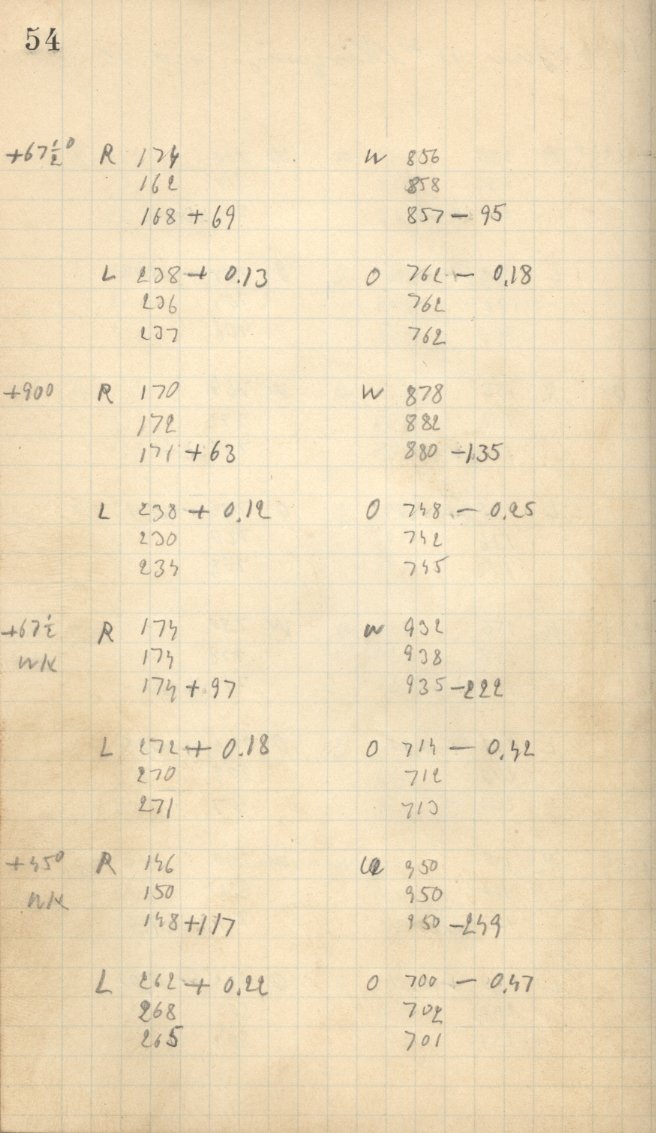 54
+67½° R 174 W 856
162 858
168 + 69 857 - 95
L 238 + 0.13 O 762 - 0.18
236 762
237 762
+90° R 170 W 878
172 882
171 + 63 880 - 135
L 238 + 0.12 O 748 - 0.25
230 742
234 745
+67½ R 174 W 932
WK 174 938
174 + 97 935 - 222
L 272 + 0.18 O 714 - 0.42
270 712
271 713
+45° R 146 W 950
WK 150 950
148 + 117 950 - 249
L 262 + 0.22 O 700 - 0.47
268 702
265 701